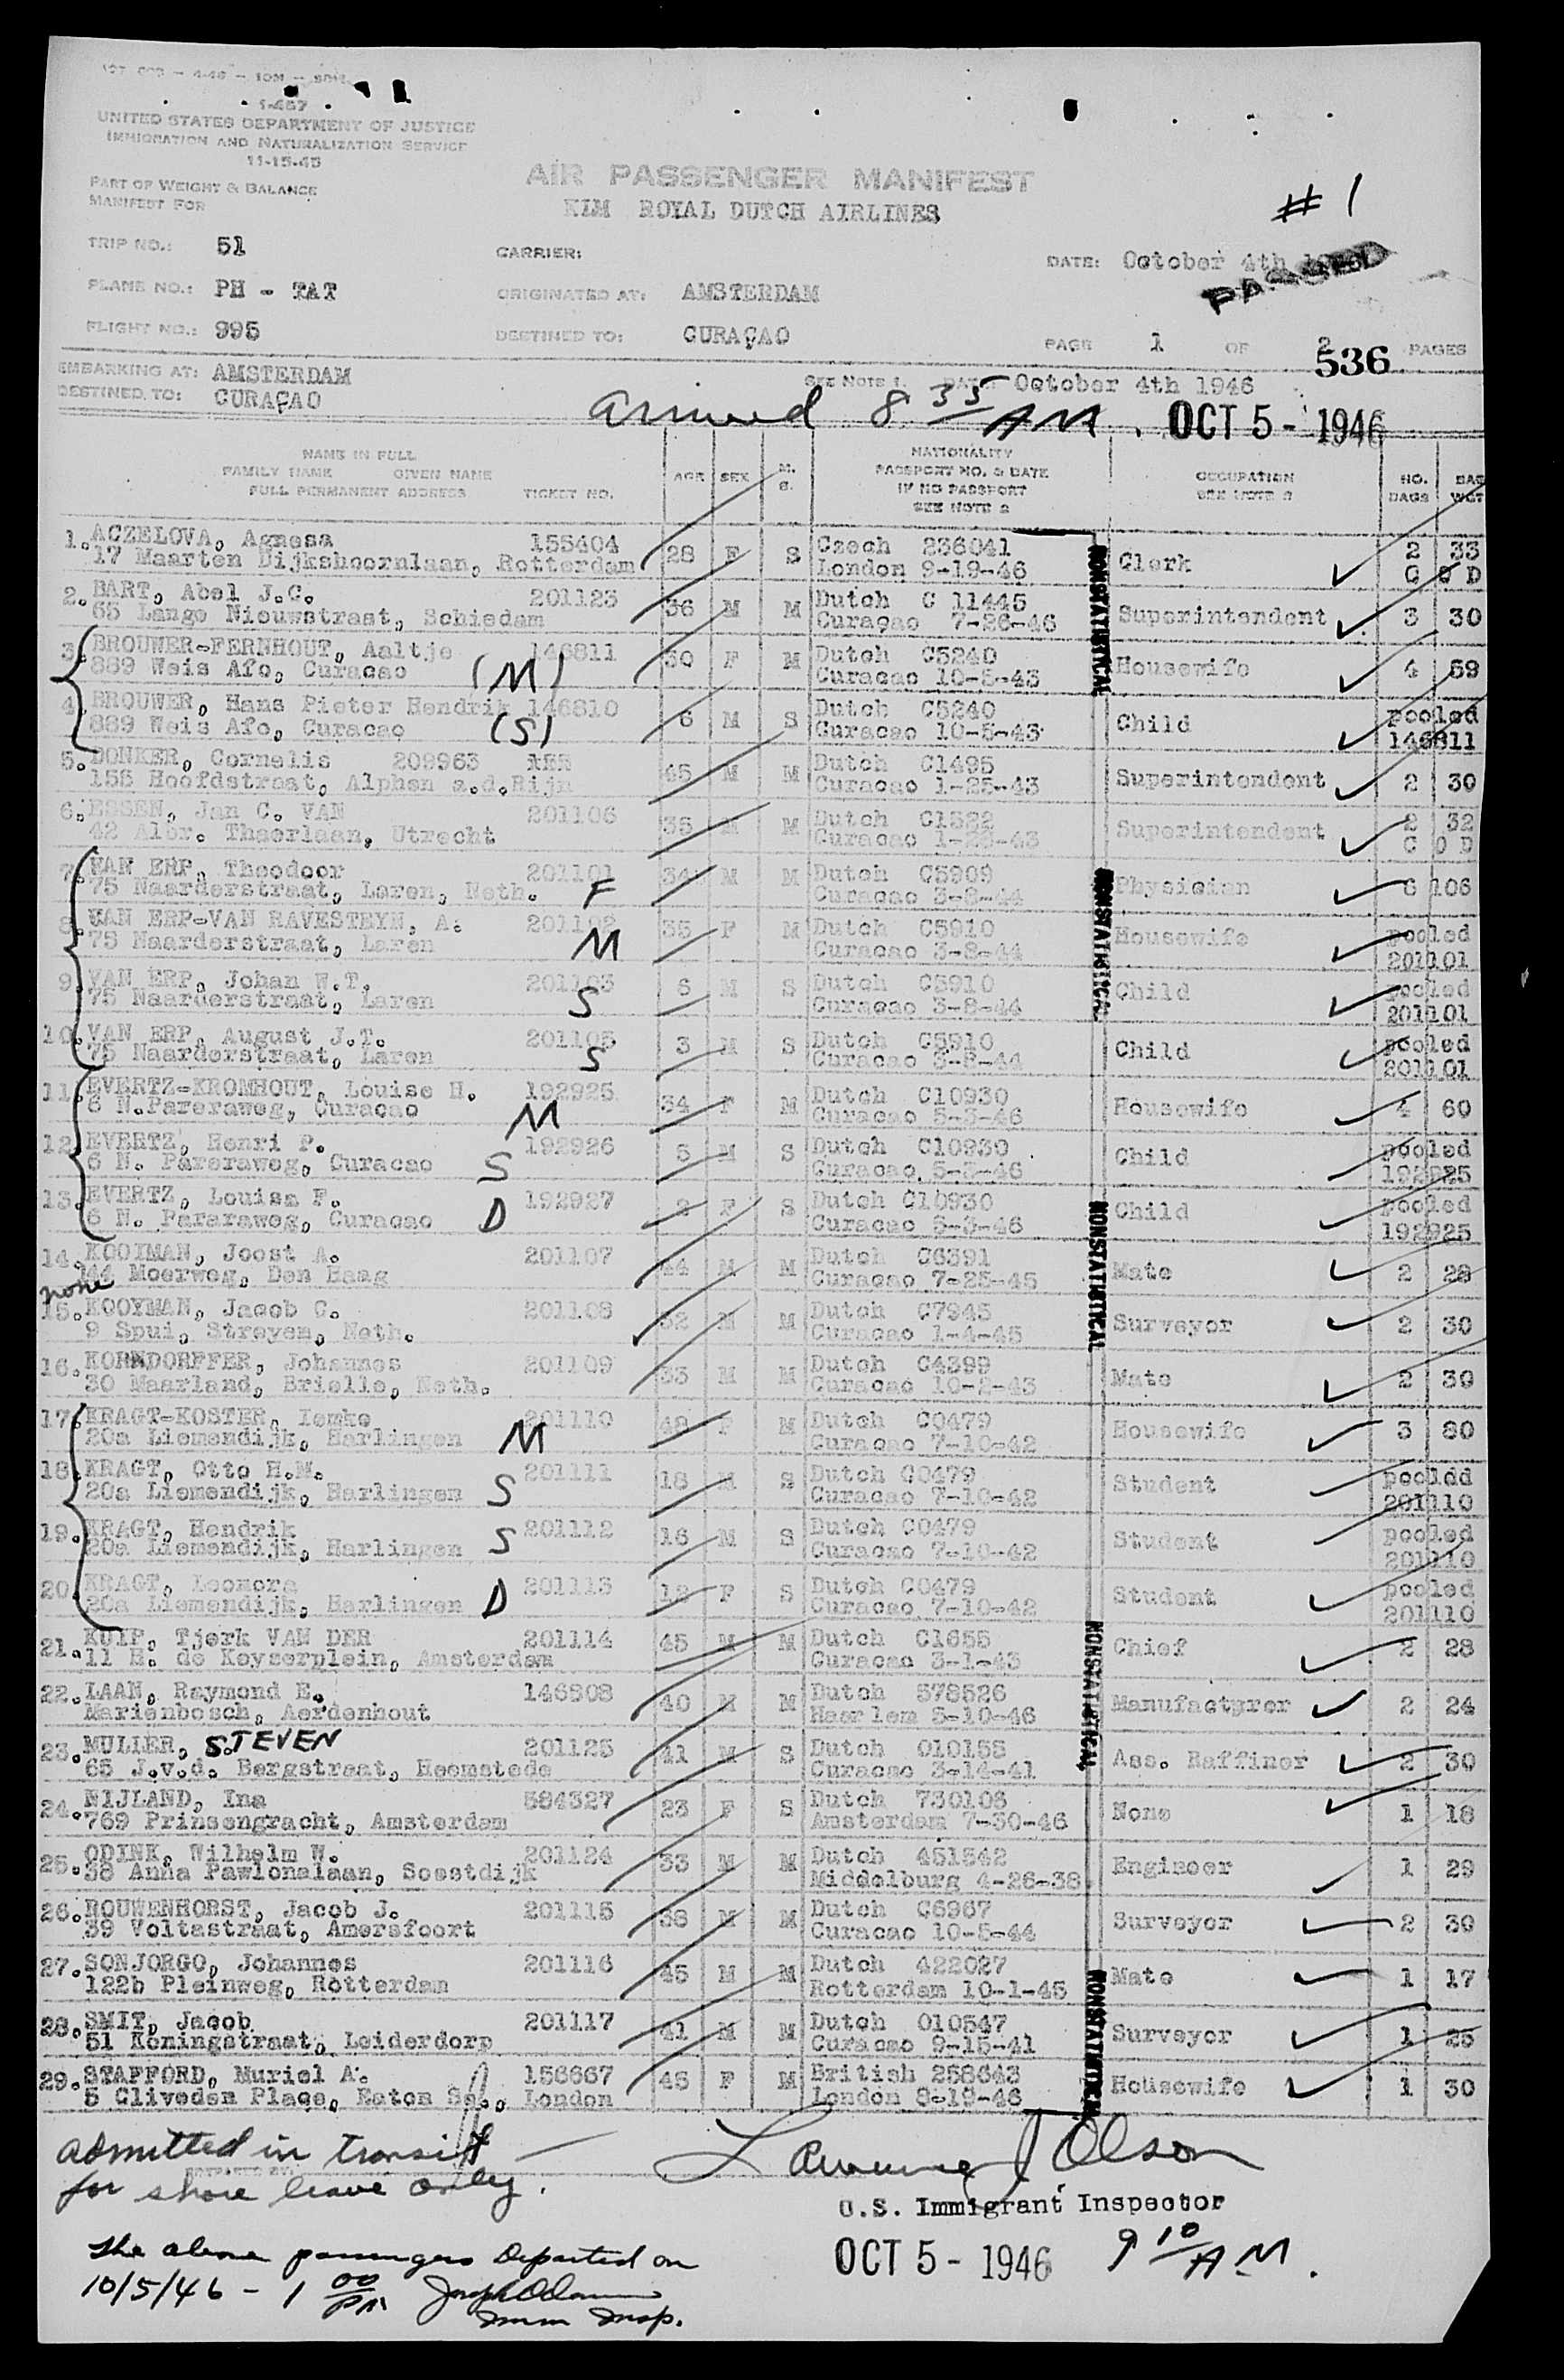 1-467
UNITED STATES DEPARTMENT OF JUSTICE
IMMIGRATION AND NATURALIZATION SERVICE
11-15-45
PART OF WEIGHT & BALANCE
MANIFEST FOR
AIR PASSENGER MANIFEST
KLM ROYAL DUTCH AIRLINES
# 1
TRIP NO.: 51 CARRIER: DATE: October 4th
PASSED
PLANE NO.: PH - TAT ORIGINATED AT: AMSTERDAM
FLIGHT NO.: 995 DESTINED TO: CURAÇAO PAGE 1 OF 2 PAGES
536
EMBARKING AT: AMSTERDAM SEE NOTE 1. DATE October 4th 1946
DESTINED TO: CURAÇAO
arrived 8 35 AM. OCT 5 - 1946
NAME IN FULL
FAMILY NAME GIVEN NAME
FULL PERMANENT ADDRESS TICKET NO. AGE SEX M. S. NATIONALITY PASSPORT NO. & DATE IF NO PASSPORT SEE NOTE 2 OCCUPATION SEE NOTE 2 NO. BAGS BAG WGT
1. ACZELOVA, Agnesa 155404 28 F S Czech 236041 Clerk 2 33
17 Maarten Dijkshoornlaan, Rotterdam London 9-19-46 C O D
2. BART, Abel J.C. 201123 36 M M Dutch C 11445 Superintendent 3 30
65 Lange Nieuwstraat, Schiedam Curaçao 7-26-46
3. BROUWER-FERNHOUT, Aaltje 146811 30 F M Dutch C5240 Housewife 4 59
889 Weis Afo, Curacao (M) Curacao 10-5-43
4. BROUWER, Hans Pieter Hendrik 146810 6 M S Dutch C5240 Child pooled
889 Weis Afo, Curacao (S) Curacao 10-5-43 146811
5. DONKER, Cornelis 209963 45 M M Dutch C1495 Superintendent 2 30
155 Hoofdstraat, Alphen a.d.Rijn Curacao 1-25-43
6. ESSEN, Jan C. VAN 201106 35 M M Dutch C1322 Superintendent 2 32
42 Albr. Thaerlaan, Utrecht Curacao 1-26-43 C O D
7. VAN ERP, Theodoor 201101 34 M M Dutch C5909 Physician 6 106
75 Naarderstraat, Laren, Neth. F Curacao 3-8-44
8. VAN ERP-VAN RAVESTEYN, A. 201102 35 F M Dutch C5910 Housewife pooled
75 Naarderstraat, Laren M Curacao 3-8-44 201101
9. VAN ERP, Johan W.T. 201103 6 M S Dutch C5910 Child pooled
75 Naarderstraat, Laren S Curacao 3-8-44 201101
10. VAN ERP, August J.T. 201105 3 M S Dutch C5910 Child pooled
75 Naarderstraat, Laren S Curacao 3-8-44 201101
11. EVERTZ-KROMHOUT, Louise H. 192925 34 F M Dutch C10930 Housewife 4 60
6 N.Pareraweg, Curacao M Curacao 5-3-46
12. EVERTZ, Henri P. 192926 5 M S Dutch C10930 Child pooled
6 N. Pareraweg, Curacao S Curacao 5-3-46 192925
13. EVERTZ, Louisa F. 192927 2 F S Dutch C10930 Child pooled
6 N. Pareraweg, Curacao D Curacao 5-3-46 192925
14. KOOIMAN, Joost A. 201107 44 M M Dutch C6391 Mate 2 28
144 Moerweg, Den Haag Curacao 7-25-45
none
15. KOOYMAN, Jacob C. 201108 32 M M Dutch C7945 Surveyor 2 30
9 Spui, Streyen, Neth. Curacao 1-4-45
16. KORNDORFFER, Johannes 201109 33 M M Dutch C4399 Mate 2 30
30 Maarland, Brielle, Neth. Curacao 10-2-43
17. KRAGT-KOSTER, Iemke 201110 48 F M Dutch C0479 Housewife 3 80
20a Liemendijk, Harlingen M Curacao 7-10-42
18. KRAGT, Otto H.M. 201111 18 M S Dutch C0479 Student pooldd
20a Liemendijk, Harlingen S Curacao 7-10-42 201110
19. KRAGT, Hendrik 201112 16 M S Dutch C0479 Student pooled
20a Liemendijk, Harlingen S Curacao 7-10-42 201110
20. KRAGT, Leonora 201113 12 F S Dutch C0479 Student pooled
20a Liemendijk, Harlingen D Curacao 7-10-42 201110
21. KUIP, Tjerk VAN DER 201114 45 M M Dutch C1655 Chief 2 28
11 H. de Keyserplein, Amsterdam Curacao 3-1-43
22. LAAN, Raymond E. 146808 40 M M Dutch 578526 Manufactyrer 2 24
Marienbosch, Aerdenhout Haarlem 5-10-46
23. MULLER, STEVEN 201125 41 M S Dutch 010155 Ass. Raffiner 2 30
65 J.v.d. Bergstraat, Heemstede Curacao 3-14-41
24. NIJLAND, Ina 584327 23 F S Dutch 730106 None 1 18
769 Prinsengracht, Amsterdam Amsterdam 7-30-46
25. ODINK, Wilhelm W. 201124 33 M M Dutch 451542 Engineer 1 29
38 Anna Pawlonalaan, Soestdijk Middelburg 4-26-38
26. ROUWENHORST, Jacob J. 201115 38 M M Dutch C6967 Surveyor 2 30
39 Voltastraat, Amersfoort Curacao 10-5-44
27. SONJORGO, Johannes 201116 45 M M Dutch 422027 Mate 1 17
122b Pleinweg, Rotterdam Rotterdam 10-1-45
28. SMIT, Jacob 201117 41 M M Dutch 010547 Surveyor 1 25
51 Koningstraat, Leiderdorp Curacao 9-15-41
29. STAFFORD, Muriel A. 156667 45 F M British 258643 Housewife 1 30
5 Cliveden Place, Eaton Sq., London London 8-19-46
NONSTATISTICAL
NONSTATISTICAL
NONSTATISTICAL
NONSTATISTICAL
NONSTATISTICAL
admitted in transit
for shore leave only.
Olson
U.S. Immigrant Inspector
OCT 5 - 1946 9 10 AM.
The above passengers departed on
10/5/46 - 1 00 PM
Imm Insp.